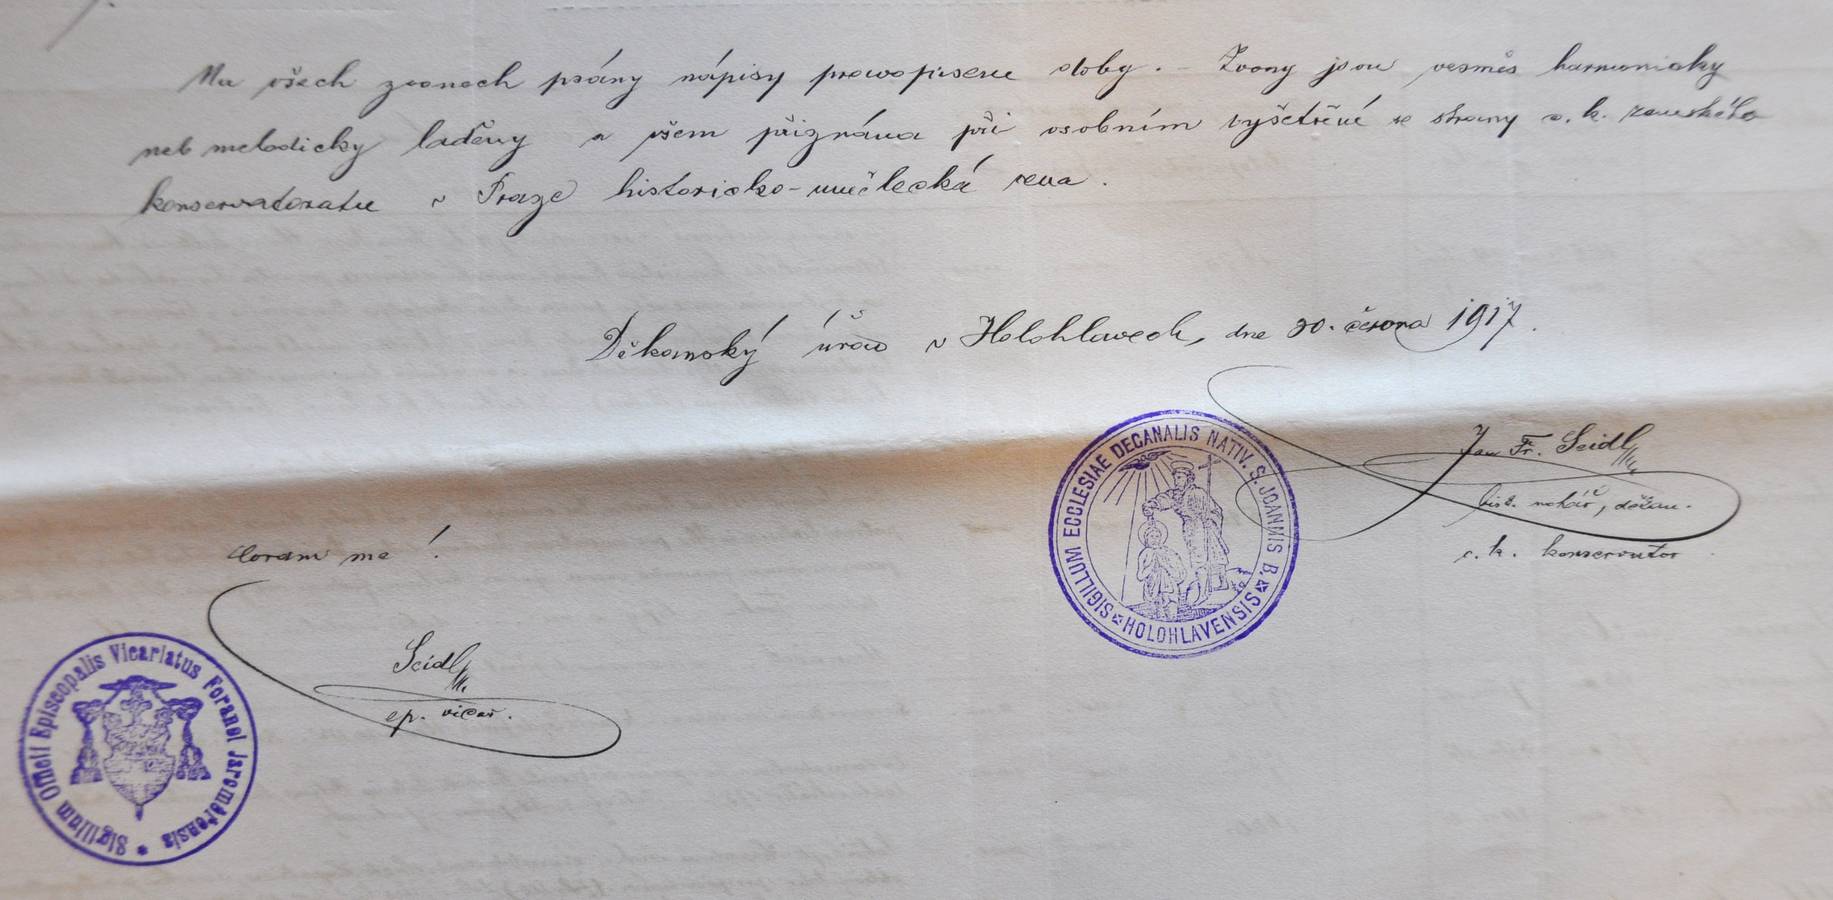 Na všech zvonech psány nápisy pravopisem doby. – Zvony jsou vesměs harmonicky
neb melodicky laděny a všem přiznána při osobním vyšetření se strany c. k. zemského
konservatoratu v Praze historicko-umělecká cena.
Děkanský úřad v Holohlavech, dne 20. června 1917.
Jan Fr. Seidl
bisk. notář, děkan.
c. k. konservator
SIGILLUM ECCLESIAE DECANALIS NATIV. S. JOANNIS B. HOLOHLAVENSIS
Coram me!
Seidl
ep. vicař.
Sigillum Officii Episcopalis Vicariatus Foranei Jaroměřensis